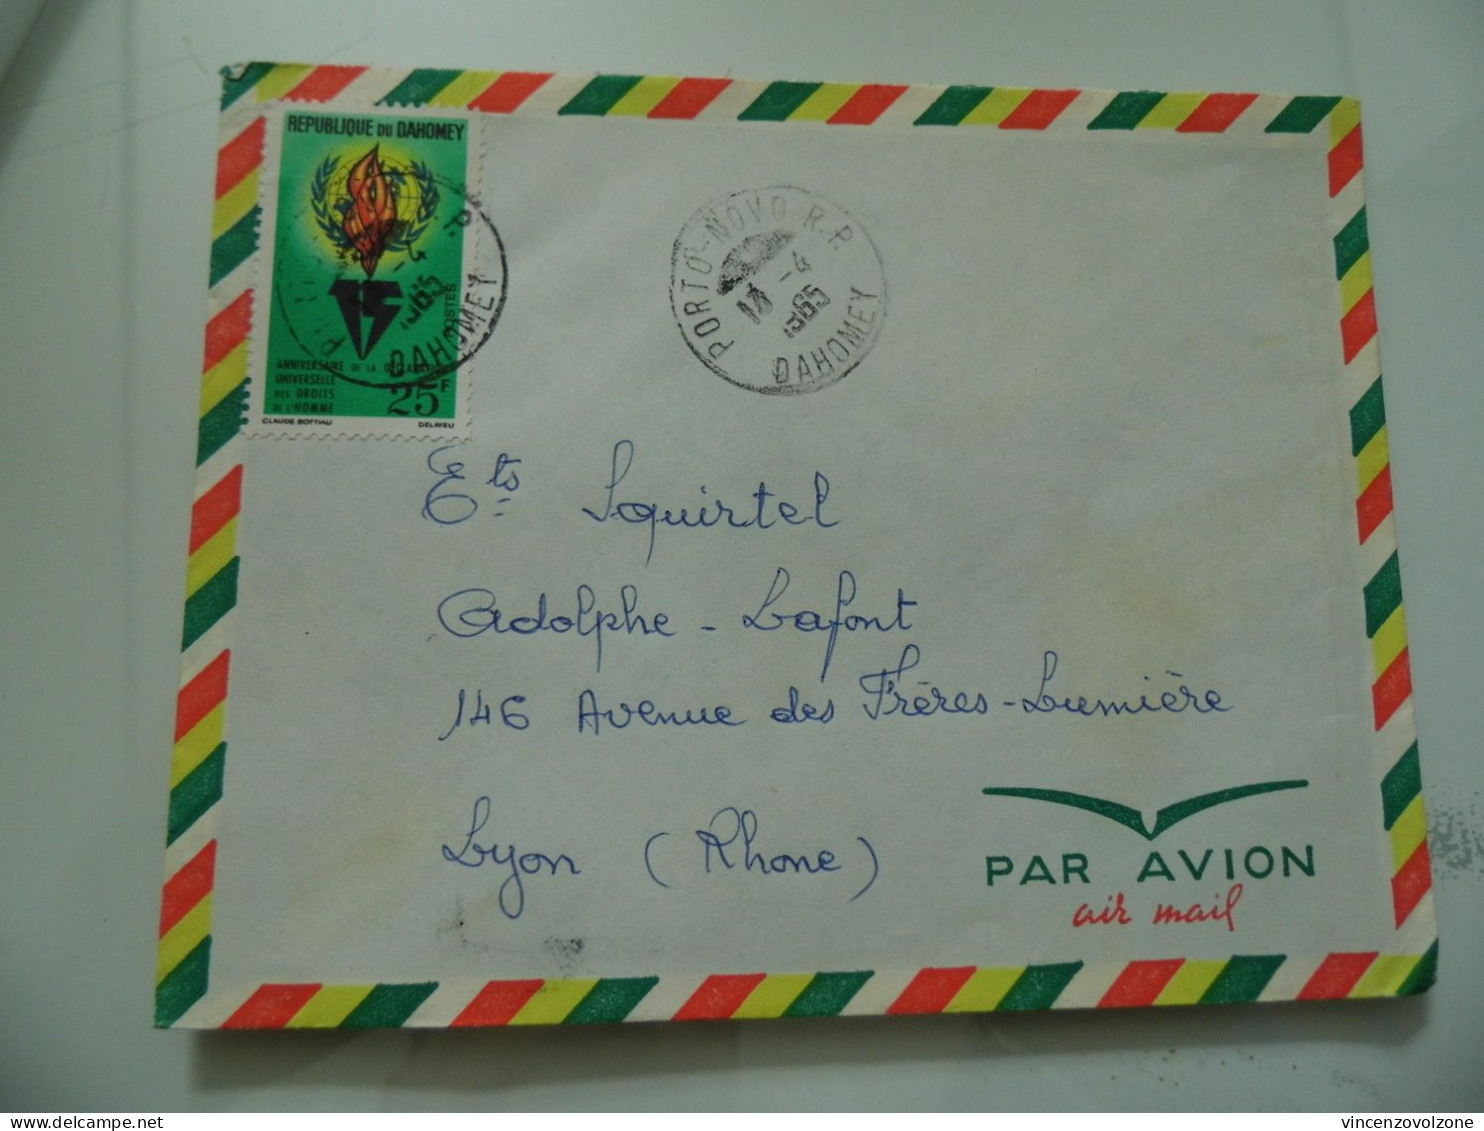 REPUBLIQUE DU DAHOMEY
POSTES
ANNIVERSAIRE DE LA DÉCLARATION
UNIVERSELLE
DES DROITS
DE L'HOMME
25F
CLAUDE BOTTIAU
DELRIEU
1965
DAHOMEY
PORTO-NOVO R.P.
-4
1965
DAHOMEY
Ets Squirtel
Adolphe - Lafont
146 Avenue des Frères-Lumière
Lyon (Rhone)
PAR AVION
air mail
vincenzovolzone